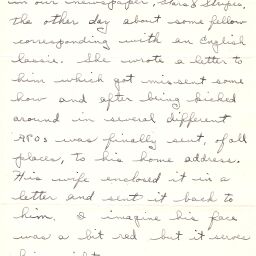 in our newspaper, Stars & Stripes,
the other day about some fellow
corresponding with an English
lassie. She wrote a letter to
him which got missent some
how and after being kicked
around in several different
APOs was finally sent, of all
places, to his home address.
His wife enclosed it in a
letter and sent it back to
him. I imagine his face
was a bit red but it serves
him right